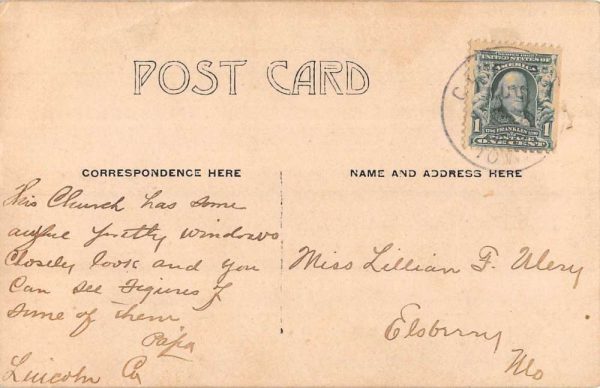 POST CARD
UNITED STATES OF
AMERICA
FRANKLIN
1 1
POSTAGE
ONE CENT
CORRESPONDENCE HERE
This Church has some
awful pretty windows
Closely look and you
Can see figures of
some of them
Papa
Lincoln
NAME AND ADDRESS HERE
Miss Lillian F. Ulery
Elsberry
Mo